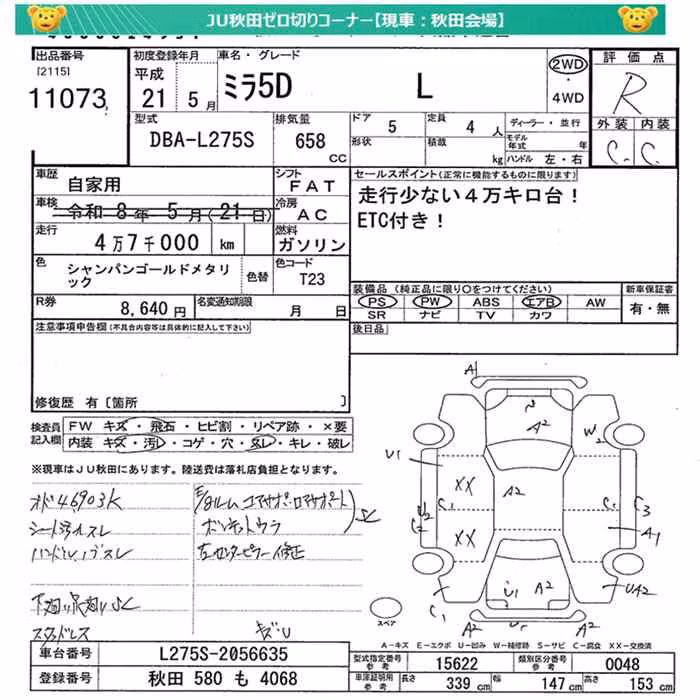 JU秋田ゼロ切りコーナー【現車：秋田会場】
出品番号
[2115]
11073
初度登録年月
平成
21 5月
車名・グレード
ミラ5D L
2WD
・
4WD
評価点
R
外装 内装
C. C.
型式
DBA-L275S
排気量
658
CC
ドア
5
定員
4人
形状
積載
kg
ディーラー・並行
モデル年式 年
ハンドル 左・右
車歴
自家用
シフト
FAT
車検
令和 8年 5月(21日)
冷房
AC
走行
4万7千000 km
燃料
ガソリン
色
シャンパンゴールドメタリック
色替
色コード
T23
R券
8,640円
名変通知期限
月 日
セールスポイント(正常に機能するものに限ります)
走行少ない4万キロ台！
ETC付き！
装備品(純正品に限り○をつけてください)
新車保証書
PS PW ABS エアB AW
有・無
SR ナビ TV カワ
後日品
注意事項申告欄(不具合内容等は具体的に記入して下さい)
修復歴 有[箇所 ]
検査員記入欄
FW キズ・飛石・ヒビ割・リペア跡・×要
内装 キズ・汚レ・コゲ・穴・スレ・キレ・破レ
※現車はJU秋田にあります。陸送費は落札店負担となります。
オド46903K
シート汚レスレ
ハンドル ノブスレ
下廻り 足廻りSC
スタッドレス
左センターピラー修正
キズU
A1
A2
W2
U1
XX
A2
XX
U2
C2
C1
C1
C3
A1
U1 A2
C1
UA2
A2
A2
スペア
A-キズ E-エクボ U-凹み W-補修跡 S-サビ C-腐食 XX-交換済
車台番号
L275S-2056635
登録番号
秋田 580 も 4068
型式指定番号
参考
15622
類別区分番号
参考
0048
車庫証明用
参考
長さ 339cm 幅 147cm 高さ 153cm